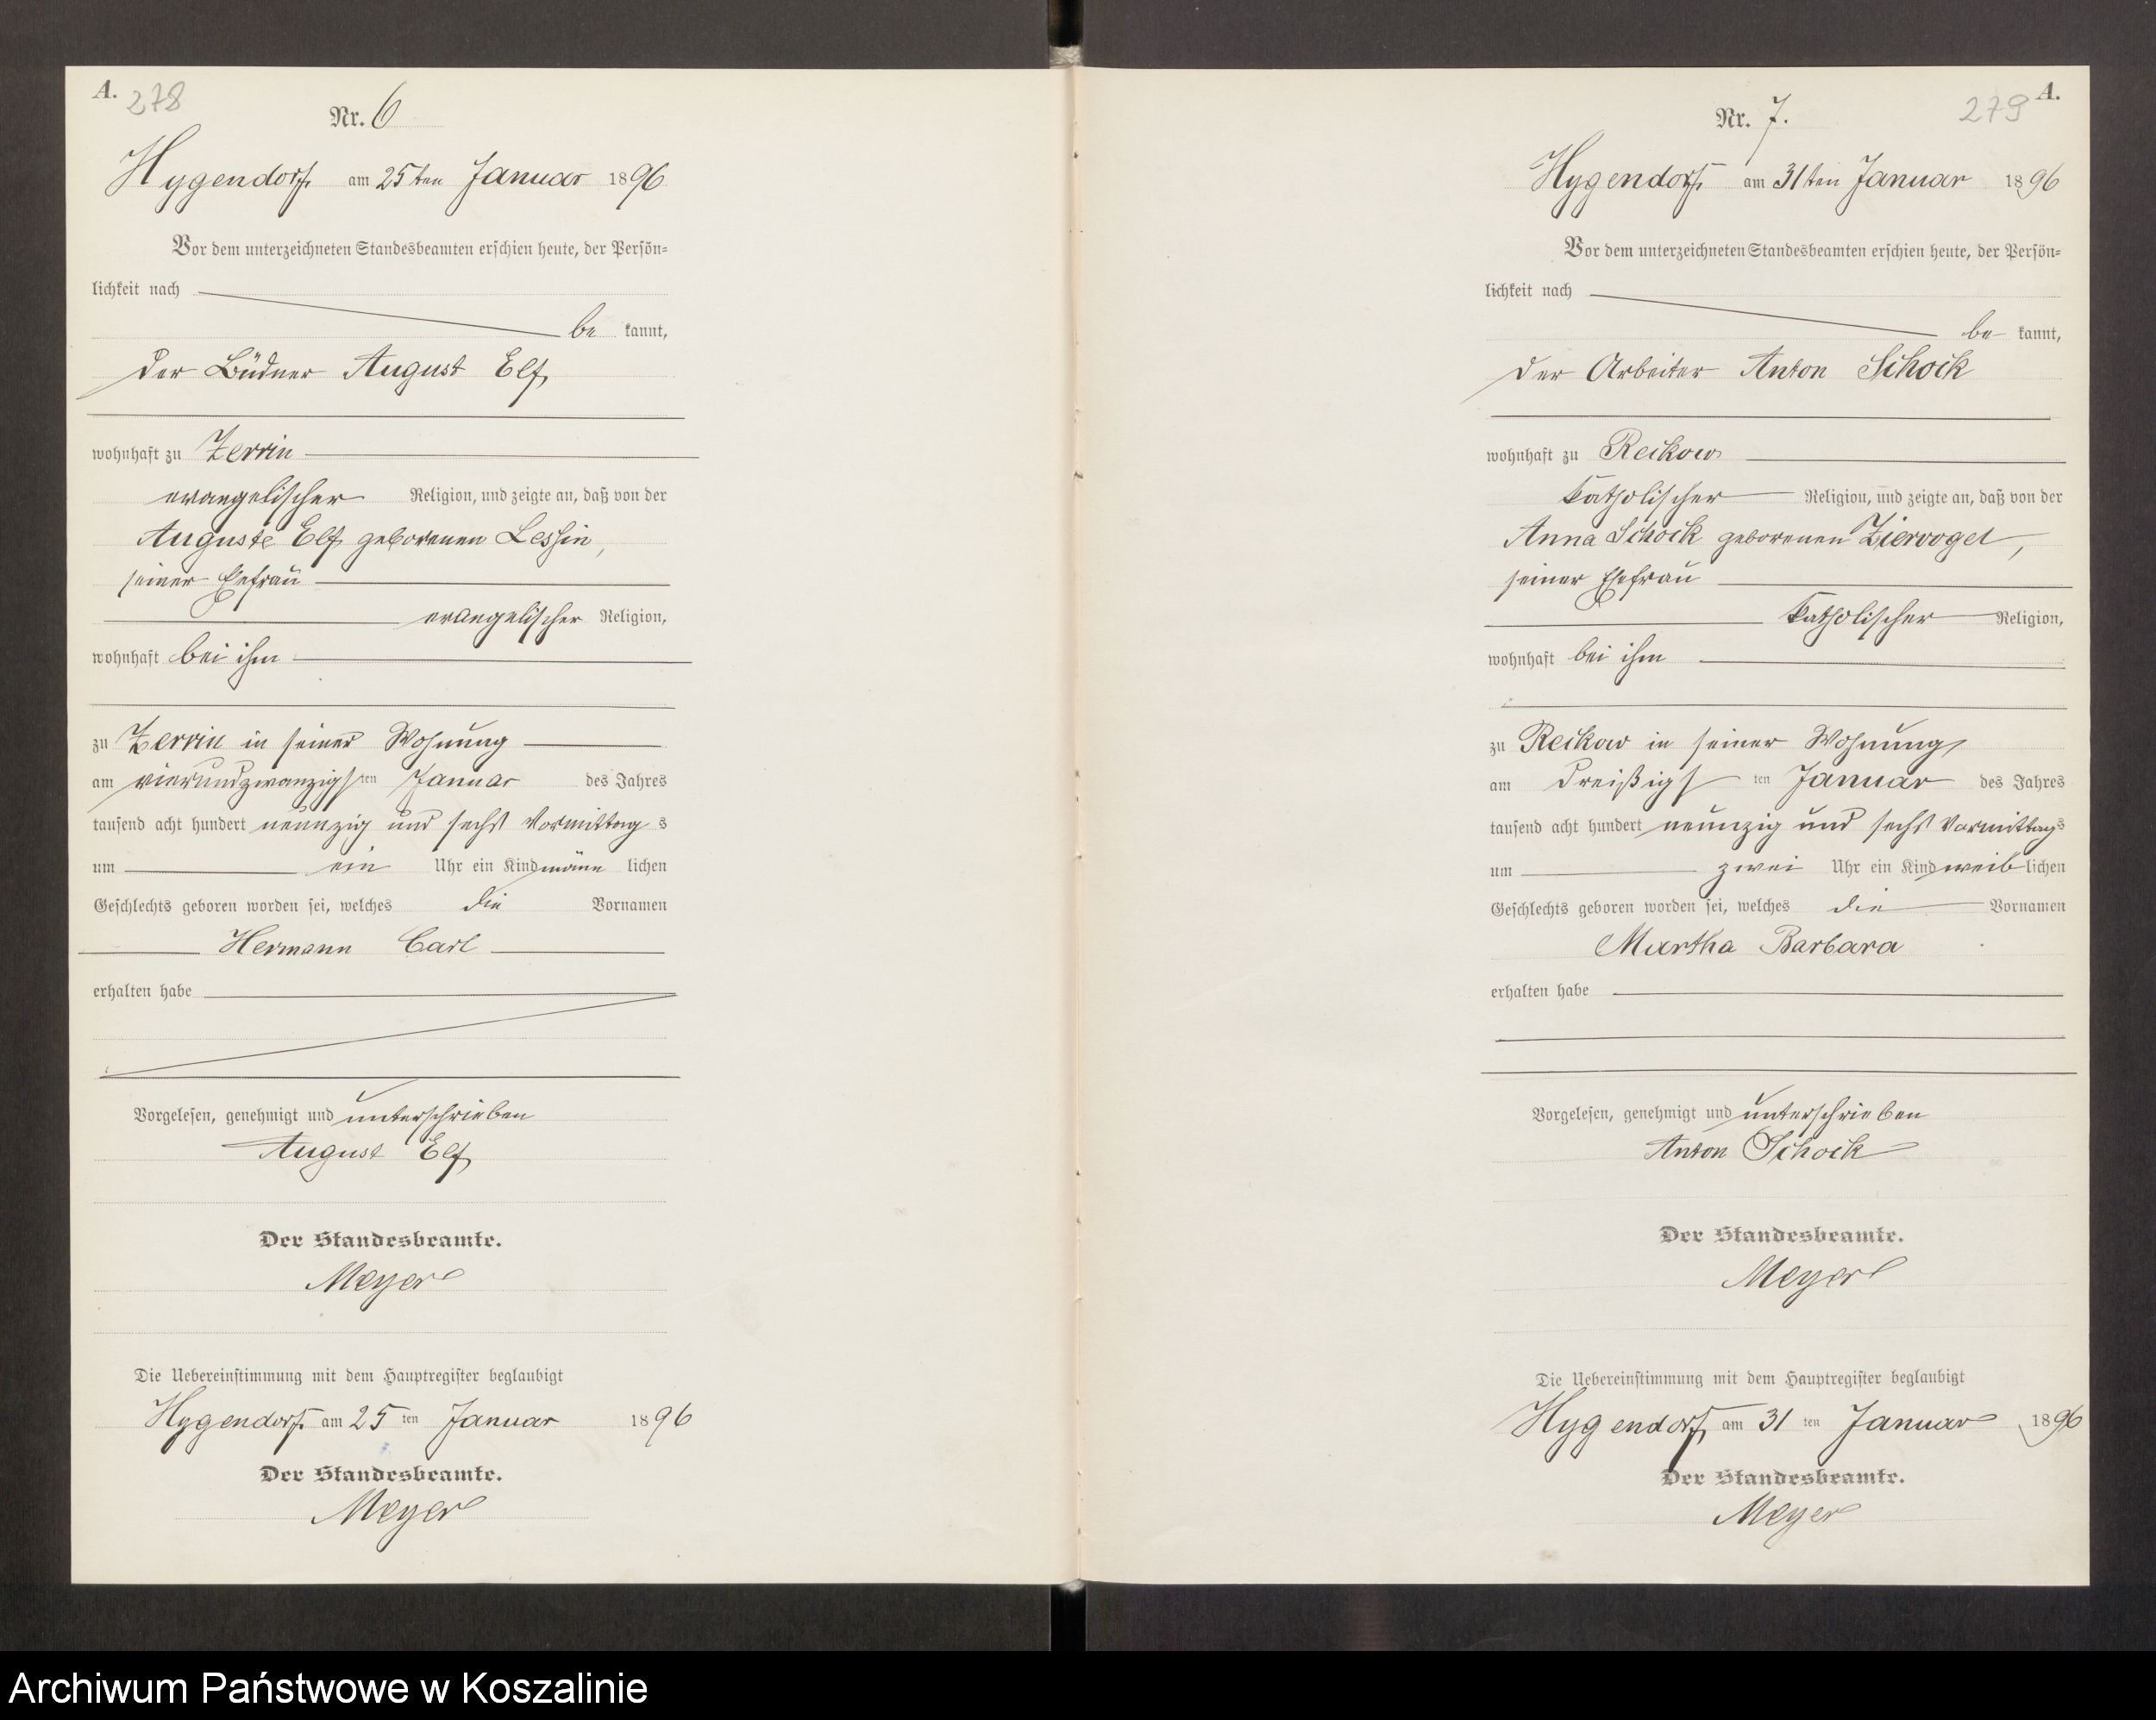 A. 278
Nr. 6
Hygendorf am 25ten Januar 1896
Vor dem unterzeichneten Standesbeamten erschien heute, der Persön=
lichkeit nach
be kannt,
der Büdner August Elf,
wohnhaft zu Zerrin
evangelischer Religion, und zeigte an, daß von der
Auguste Elf geborenen Lessin,
seiner Ehefrau
evangelischer Religion,
wohnhaft bei ihm
zu Zerrin in seiner Wohnung
am vierundzwanzigsten Januar des Jahres
tausend acht hundert neunzig und sechs Vormittags
um ein Uhr ein Kind männlichen
Geschlechts geboren worden sei, welches die Vornamen
Hermann Carl
erhalten habe
Vorgelesen, genehmigt und unterschrieben
August Elf
Der Standesbeamte.
Meyer
Die Uebereinstimmung mit dem Hauptregister beglaubigt
Hygendorf am 25ten Januar 1896
Der Standesbeamte.
Meyer
279 A.
Nr. 7.
Hygendorf am 31ten Januar 1896
Vor dem unterzeichneten Standesbeamten erschien heute, der Persön=
lichkeit nach
be kannt,
der Arbeiter Anton Schock
wohnhaft zu Reckow
katholischer Religion, und zeigte an, daß von der
Anna Schock geborenen Ziervogel,
seiner Ehefrau
katholischer Religion,
wohnhaft bei ihm
zu Reckow in seiner Wohnung
am dreißigsten Januar des Jahres
tausend acht hundert neunzig und sechs Vormittags
um zwei Uhr ein Kind weiblichen
Geschlechts geboren worden sei, welches die Vornamen
Martha Barbara
erhalten habe
Vorgelesen, genehmigt und unterschrieben
Anton Schock
Der Standesbeamte.
Meyer
Die Uebereinstimmung mit dem Hauptregister beglaubigt
Hygendorf am 31ten Januar 1896
Der Standesbeamte.
Meyer
Archiwum Państwowe w Koszalinie